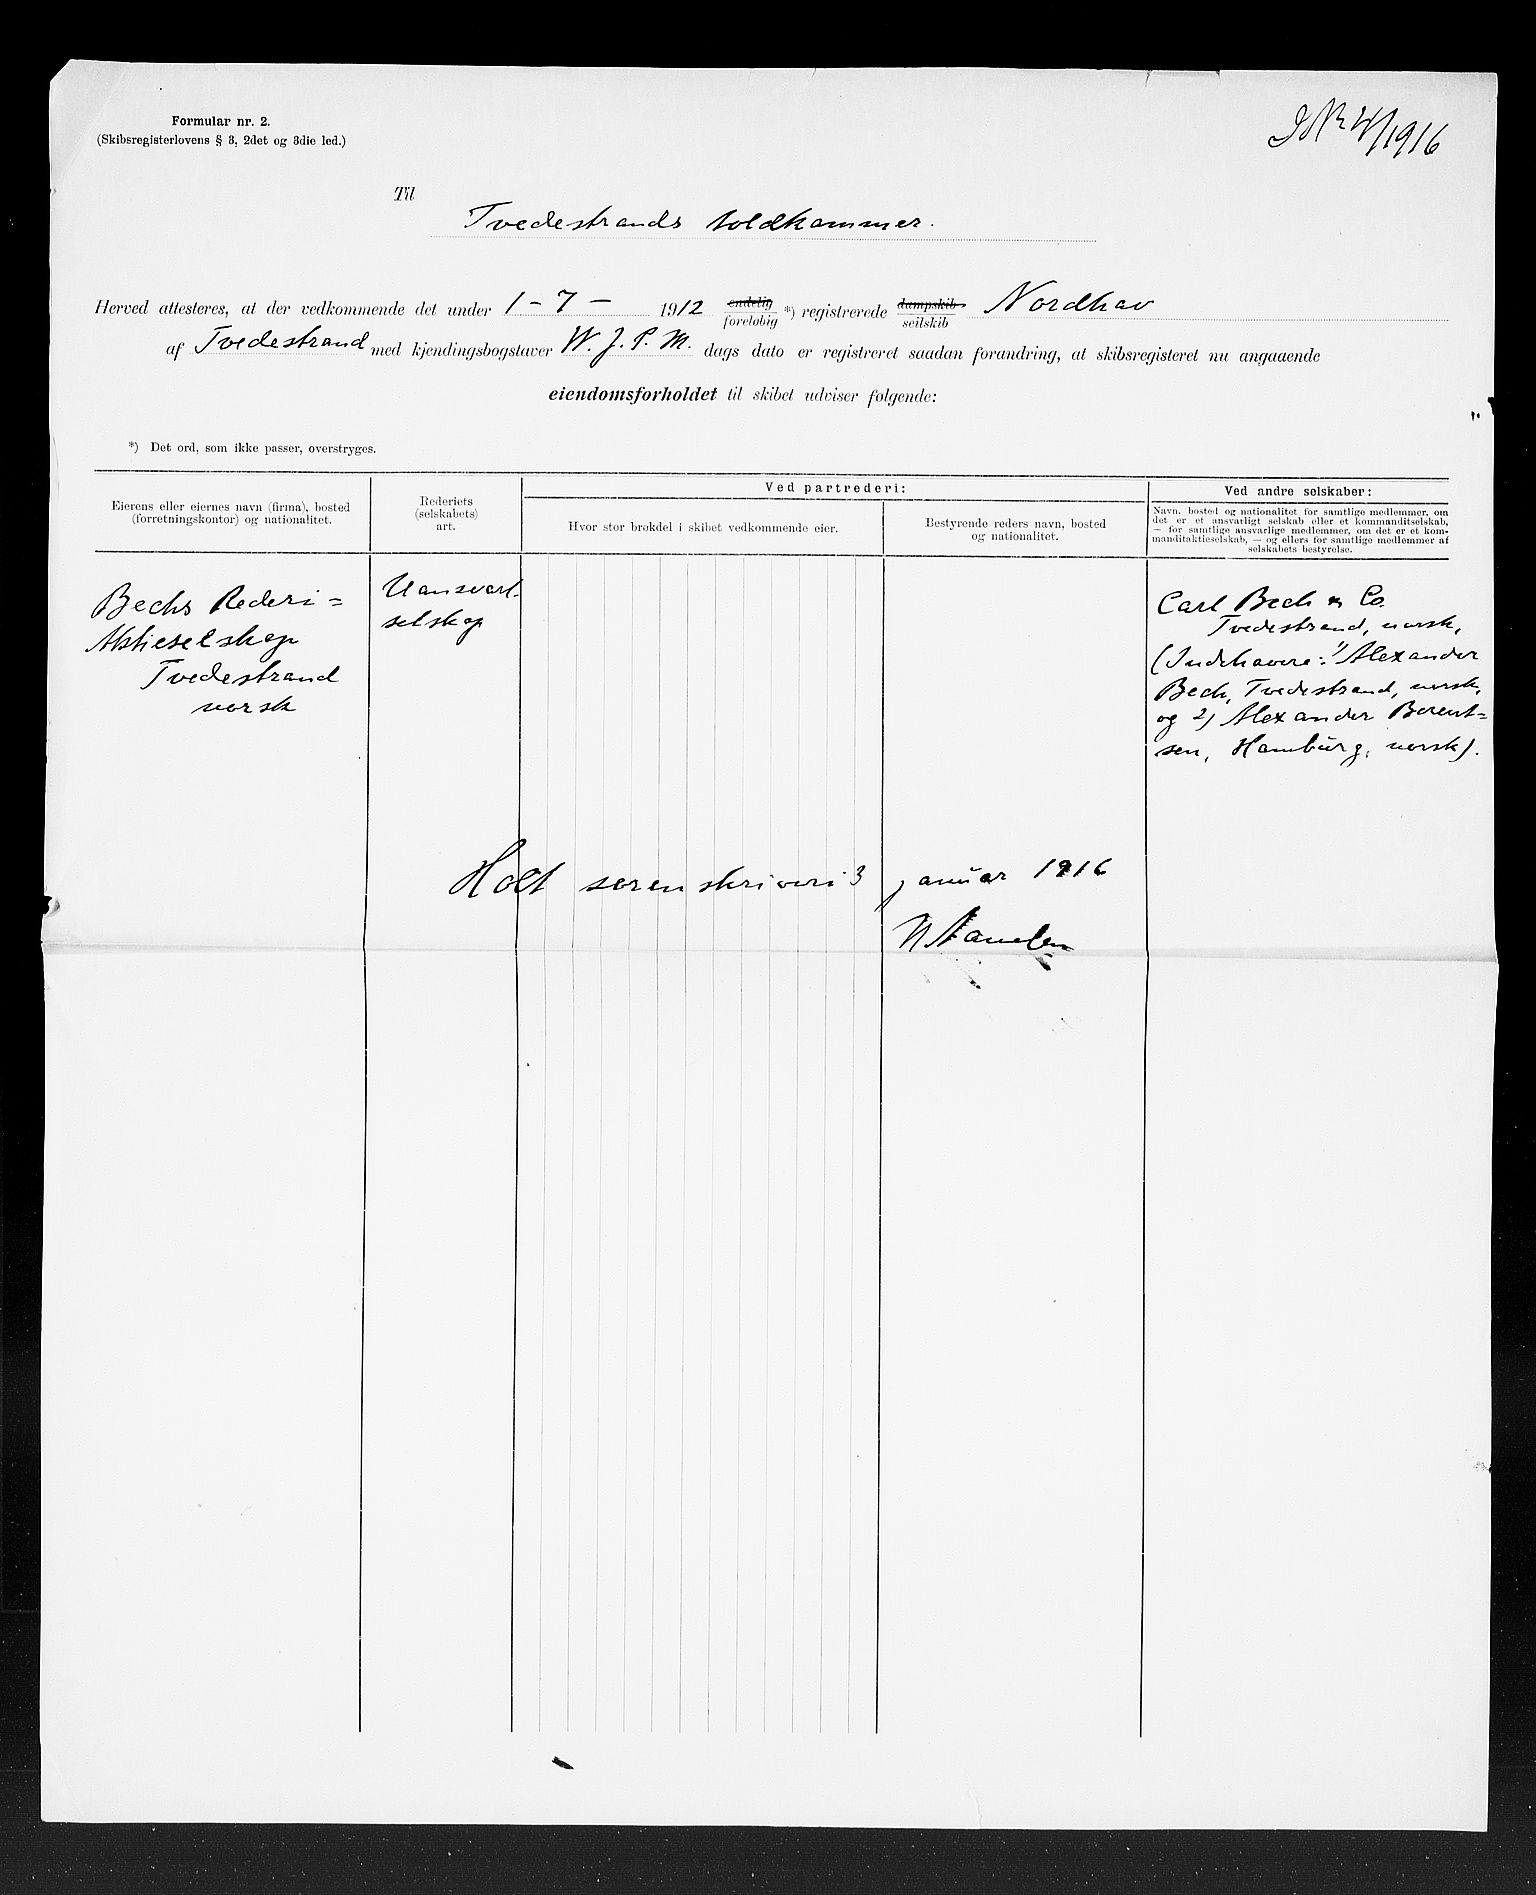 Formular nr. 2.
(Skibsregisterlovens § 3, 2det og 3die led.)
JNr 4/1916
Til
Tvedestrands toldkammer.
Herved attesteres, at der vedkommende det under 1 - 7 - 1912 endelig foreløbig *) registrerede dampskib seilskib Nordhav
af Tvedestrand med kjendingsbogstaver W. J. P. M. dags dato er registreret saadan forandring, at skibsregisteret nu angaaende
eiendomsforholdet til skibet udviser følgende:
*) Det ord, som ikke passer, overstryges.
Eierens eller eiernes navn (firma), bosted
(forretningskontor) og nationalitet.
Rederiets
(selskabets)
art.
Ved partrederi:
Hvor stor brøkdel i skibet vedkommende eier.
Bestyrende reders navn, bosted
og nationalitet.
Ved andre selskaber:
Navn, bosted og nationalitet for samtlige medlemmer, om
det er et ansvarligt selskab eller et kommanditselskab,
— for samtlige ansvarlige medlemmer, om det er et kom-
manditaktieselskab, — og ellers for samtlige medlemmer af
selskabets bestyrelse.
Bechs Rederi=
Aktieselskap
Tvedestrand
norsk
Uansvarl.
selskap
Carl Bech & Co.
Tvedestrand, norsk,
(Indehavere: 1) Alexander
Bech, Tvedestrand, norsk,
og 2) Alexander Berent=
sen, Hamburg, norsk).
Holt sorenskriveri 3 januar 1916